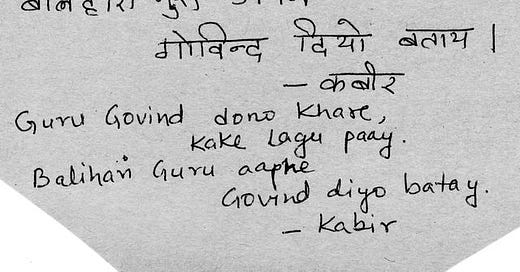 गोविन्द दियो बताय |
– कबीर
Guru Govind dono khare,
kake lagu paay.
Balihari Guru aapne
Govind diyo batay.
– Kabir